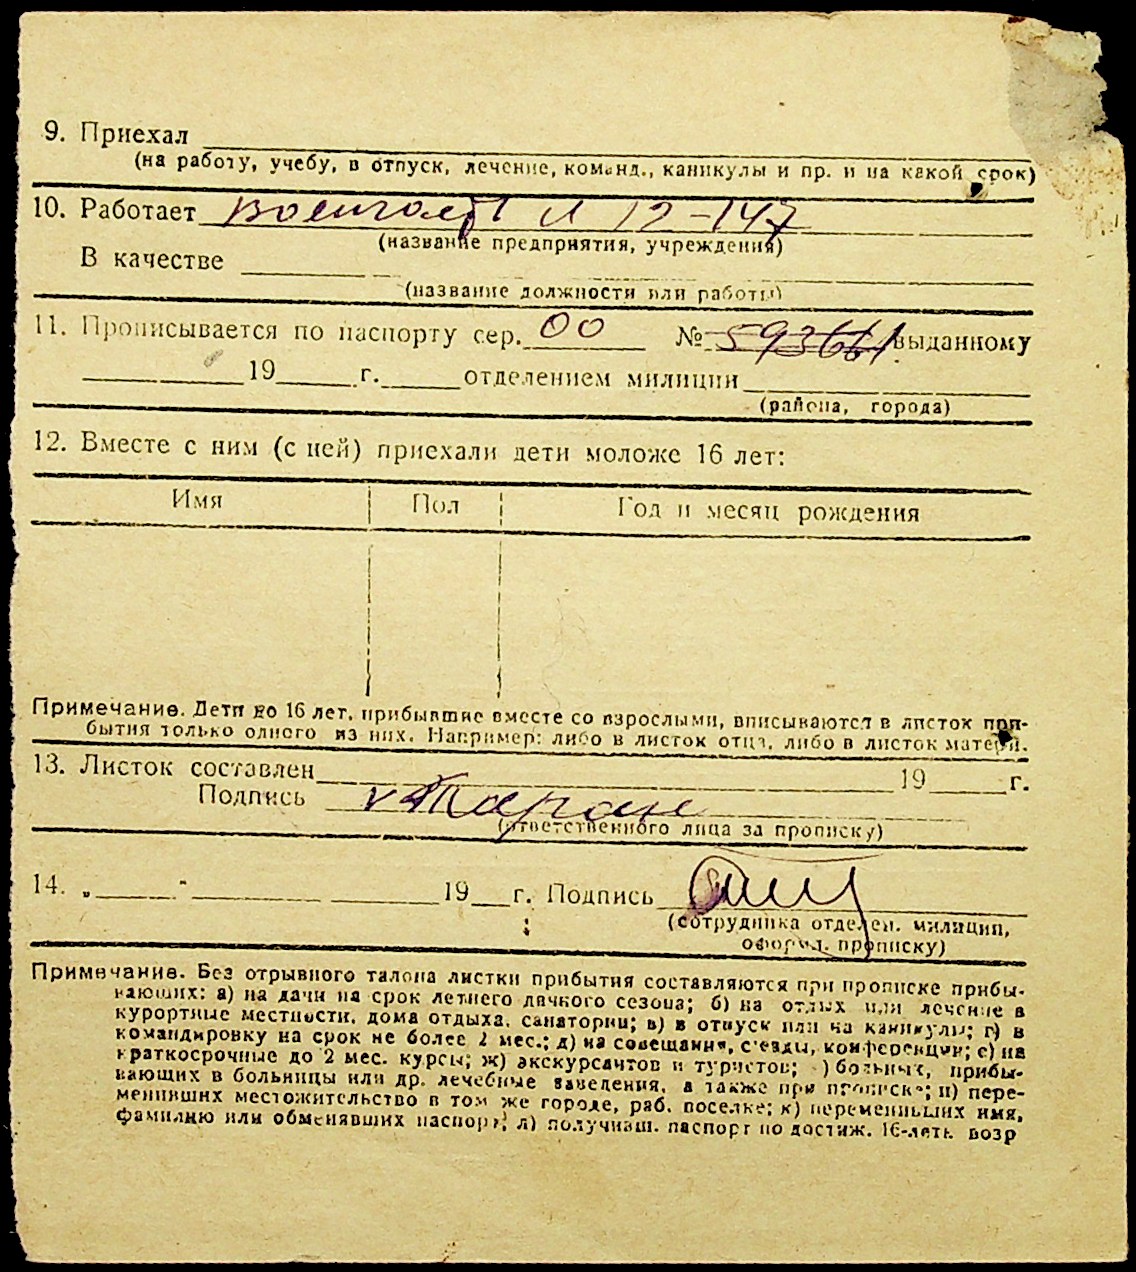 9. Приехал
(на работу, учебу, в отпуск, лечение, команд., каникулы и пр. и на какой срок)
10. Работает 12-147
(название предприятия, учреждения)
В качестве
(название должности или работы)
11. Прописывается по паспорту сер. 00 № 593661 выданному
19 г. отделением милиции
(района, города)
12. Вместе с ним (с ней) приехали дети моложе 16 лет:
Имя Пол Год и месяц рождения
Примечание. Дети до 16 лет, прибывшие вместе со взрослыми, вписываются в листок при-
бытия только одного из них. Например: либо в листок отца, либо в листок матери.
13. Листок составлен 19 г.
Подпись Таран
(ответственного лица за прописку)
14. „ " 19 г. Подпись
(сотрудника отделен. милиции,
оформл. прописку)
Примечание. Без отрывного талона листки прибытия составляются при прописке прибы-
вающих: а) на дачи на срок летнего дачного сезона; б) на отдых или лечение в
курортные местности, дома отдыха, санатории; в) в отпуск или на каникулы; г) в
командировку на срок не более 2 мес.; д) на совещания, съезды, конференции; е) на
краткосрочные до 2 мес. курсы; ж) экскурсантов и туристов; ) больных, прибы-
вающих в больницы или др. лечебные заведения, а также при прописке; и) пере-
менивших местожительство в том же городе, раб. поселке; к) переменивших имя,
фамилию или обменявших паспорт; л) получивш. паспорт по достиж. 16-летн. возр